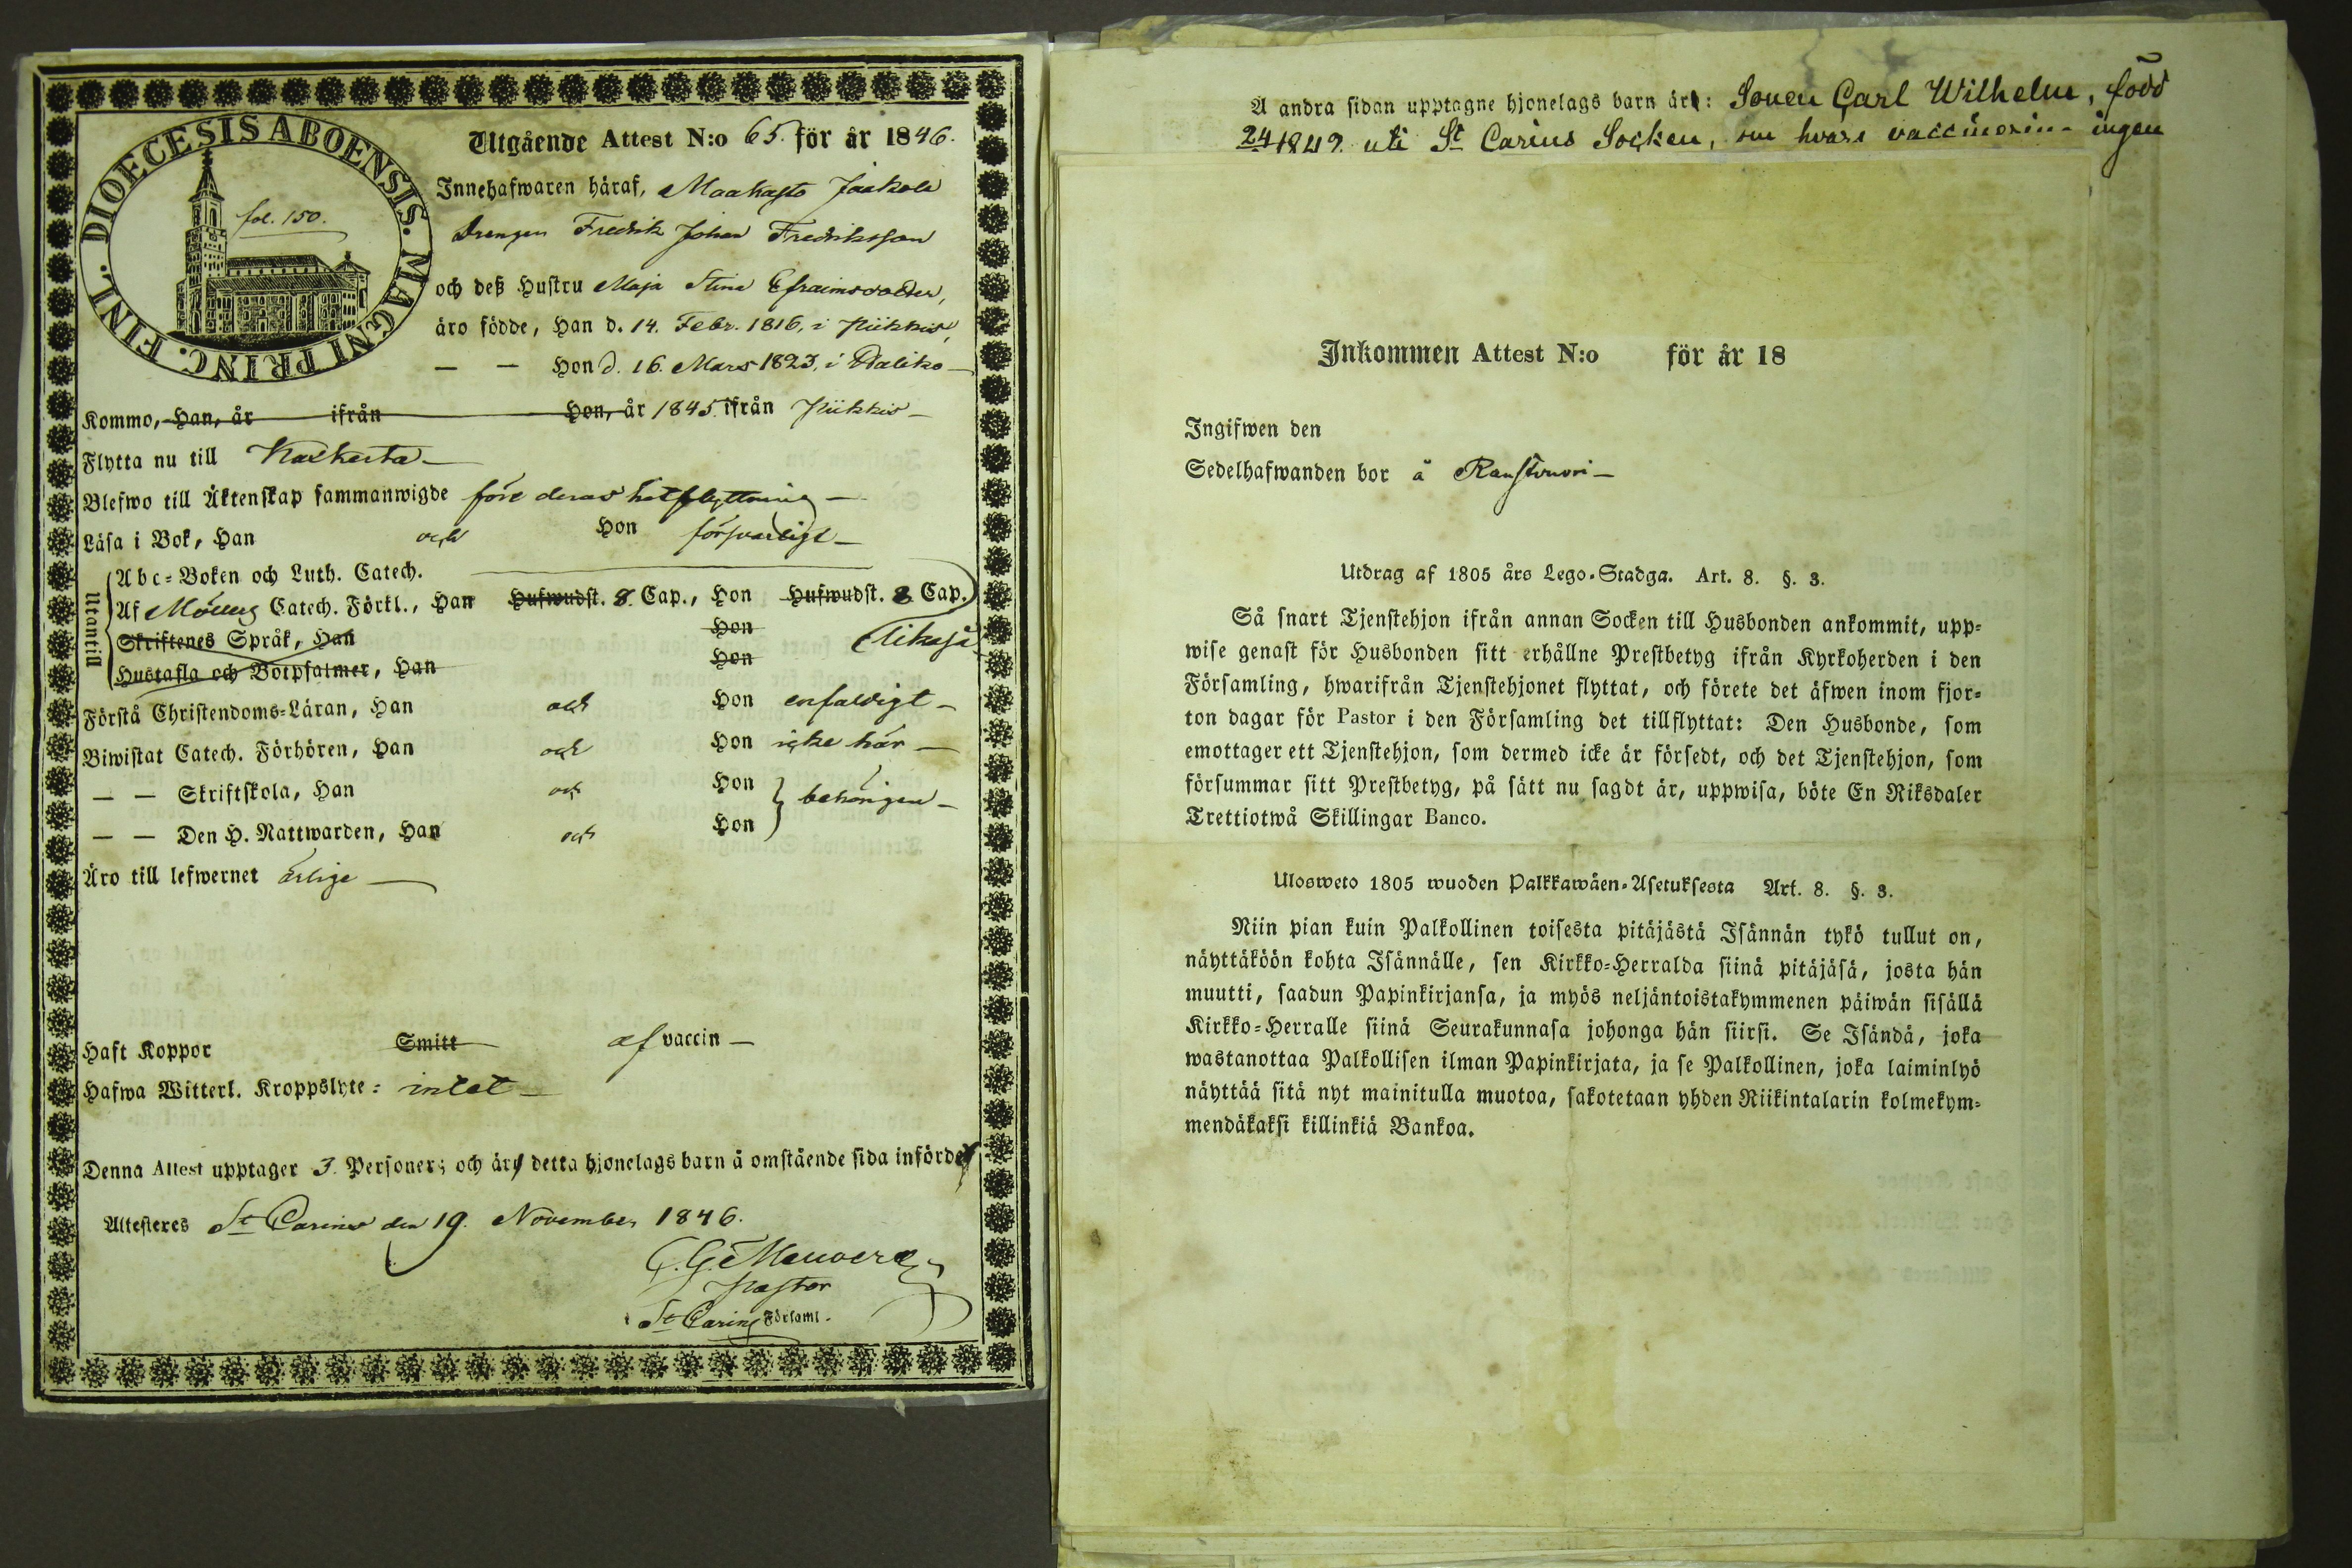 DIOECESIS ABOENSIS. MAGNI PRINC. FINL.
fol. 150.
Utgående Attest N:o 65. för år 1846.
Innehafwaren häraf, Jaakola
Drengen Fredrik Johan Fredriksson
och deß Hustru Maja Stina Efraimsdotter,
äro födde, Han d. 14. Febr. 1816, i Piikkis,
— — Hon d. 16. Mars 1823, i Haliko —
Kommo, Han, år ifrån Hon, år 1845. ifrån Piikkis —
Flytta nu till Kaskerta —
Blefwo till Äktenskap sammanwigde före deras hitflyttning —
Läsa i Bok, Han och Hon försvarligt —
Utantill
Abc-Boken och Luth. Catech.
Af Catech. Förkl., Han Hufwudst. 8. Cap., Hon Hufwudst. 8 Cap.
Skriftenes Språk, Han Hon likaså
Hustafla och Botpsalmer, Han Hon
Förstå Christendoms-Läran, Han och Hon enfaldigt —
Biwistat Catech. Förhören, Han och Hon icke här —
— — Skriftskola, Han och Hon behörigen —
— — Den H. Nattwarden, Han och Hon
Äro till lefwernet ärlige —
Haft Koppor Smitt af vaccin —
Hafwa Witterl. Kroppslyte: intet —
Denna Attest upptager 3. Personer; och äro detta hjonelags barn å omstående sida införde
Attesteres St Carins den 19. November 1846.
Pastor
i St Carins Församl.
Å andra sidan upptagne hjonelags barn är: Sonen Carl Wilhelm, född
uti St Carins Socken, om hvars vaccinering ingen
Inkommen Attest N:o för år 18
Ingifwen den
Sedelhafwanden bor å Rauhvuori —
Utdrag af 1805 års Lego-Stadga. Art. 8. §. 3.
Så snart Tjenstehjon ifrån annan Socken till Husbonden ankommit, upp-
wise genast för Husbonden sitt erhållne Prestbetyg ifrån Kyrkoherden i den
Församling, hwarifrån Tjenstehjonet flyttat, och förete det äfwen inom fjor-
ton dagar för Pastor i den Församling det tillflyttat: Den Husbonde, som
emottager ett Tjenstehjon, som dermed icke är försedt, och det Tjenstehjon, som
försummar sitt Prestbetyg, på sätt nu sagdt är, uppwisa, böte En Riksdaler
Trettiotwå Skillingar Banco.
Ulosweto 1805 wuoden Palkkawäen-Asetuksesta Art. 8. §. 3.
Niin pian kuin Palkollinen toisesta pitäjästä Isännän tykö tullut on,
näyttäköön kohta Isännälle, sen Kirkko-Herralda siinä pitäjäsä, josta hän
muutti, saadun Papinkirjansa, ja myös neljäntoistakymmenen päiwän sisällä
Kirkko-Herralle siinä Seurakunnasa johonga hän siirsi. Se Isändä, joka
wastanottaa Palkollisen ilman Papinkirjata, ja se Palkollinen, joka laiminlyö
näyttää sitä nyt mainitulla muotoa, sakotetaan yhden Riikintalarin kolmekym-
mendäkaksi killinkiä Bankoa.